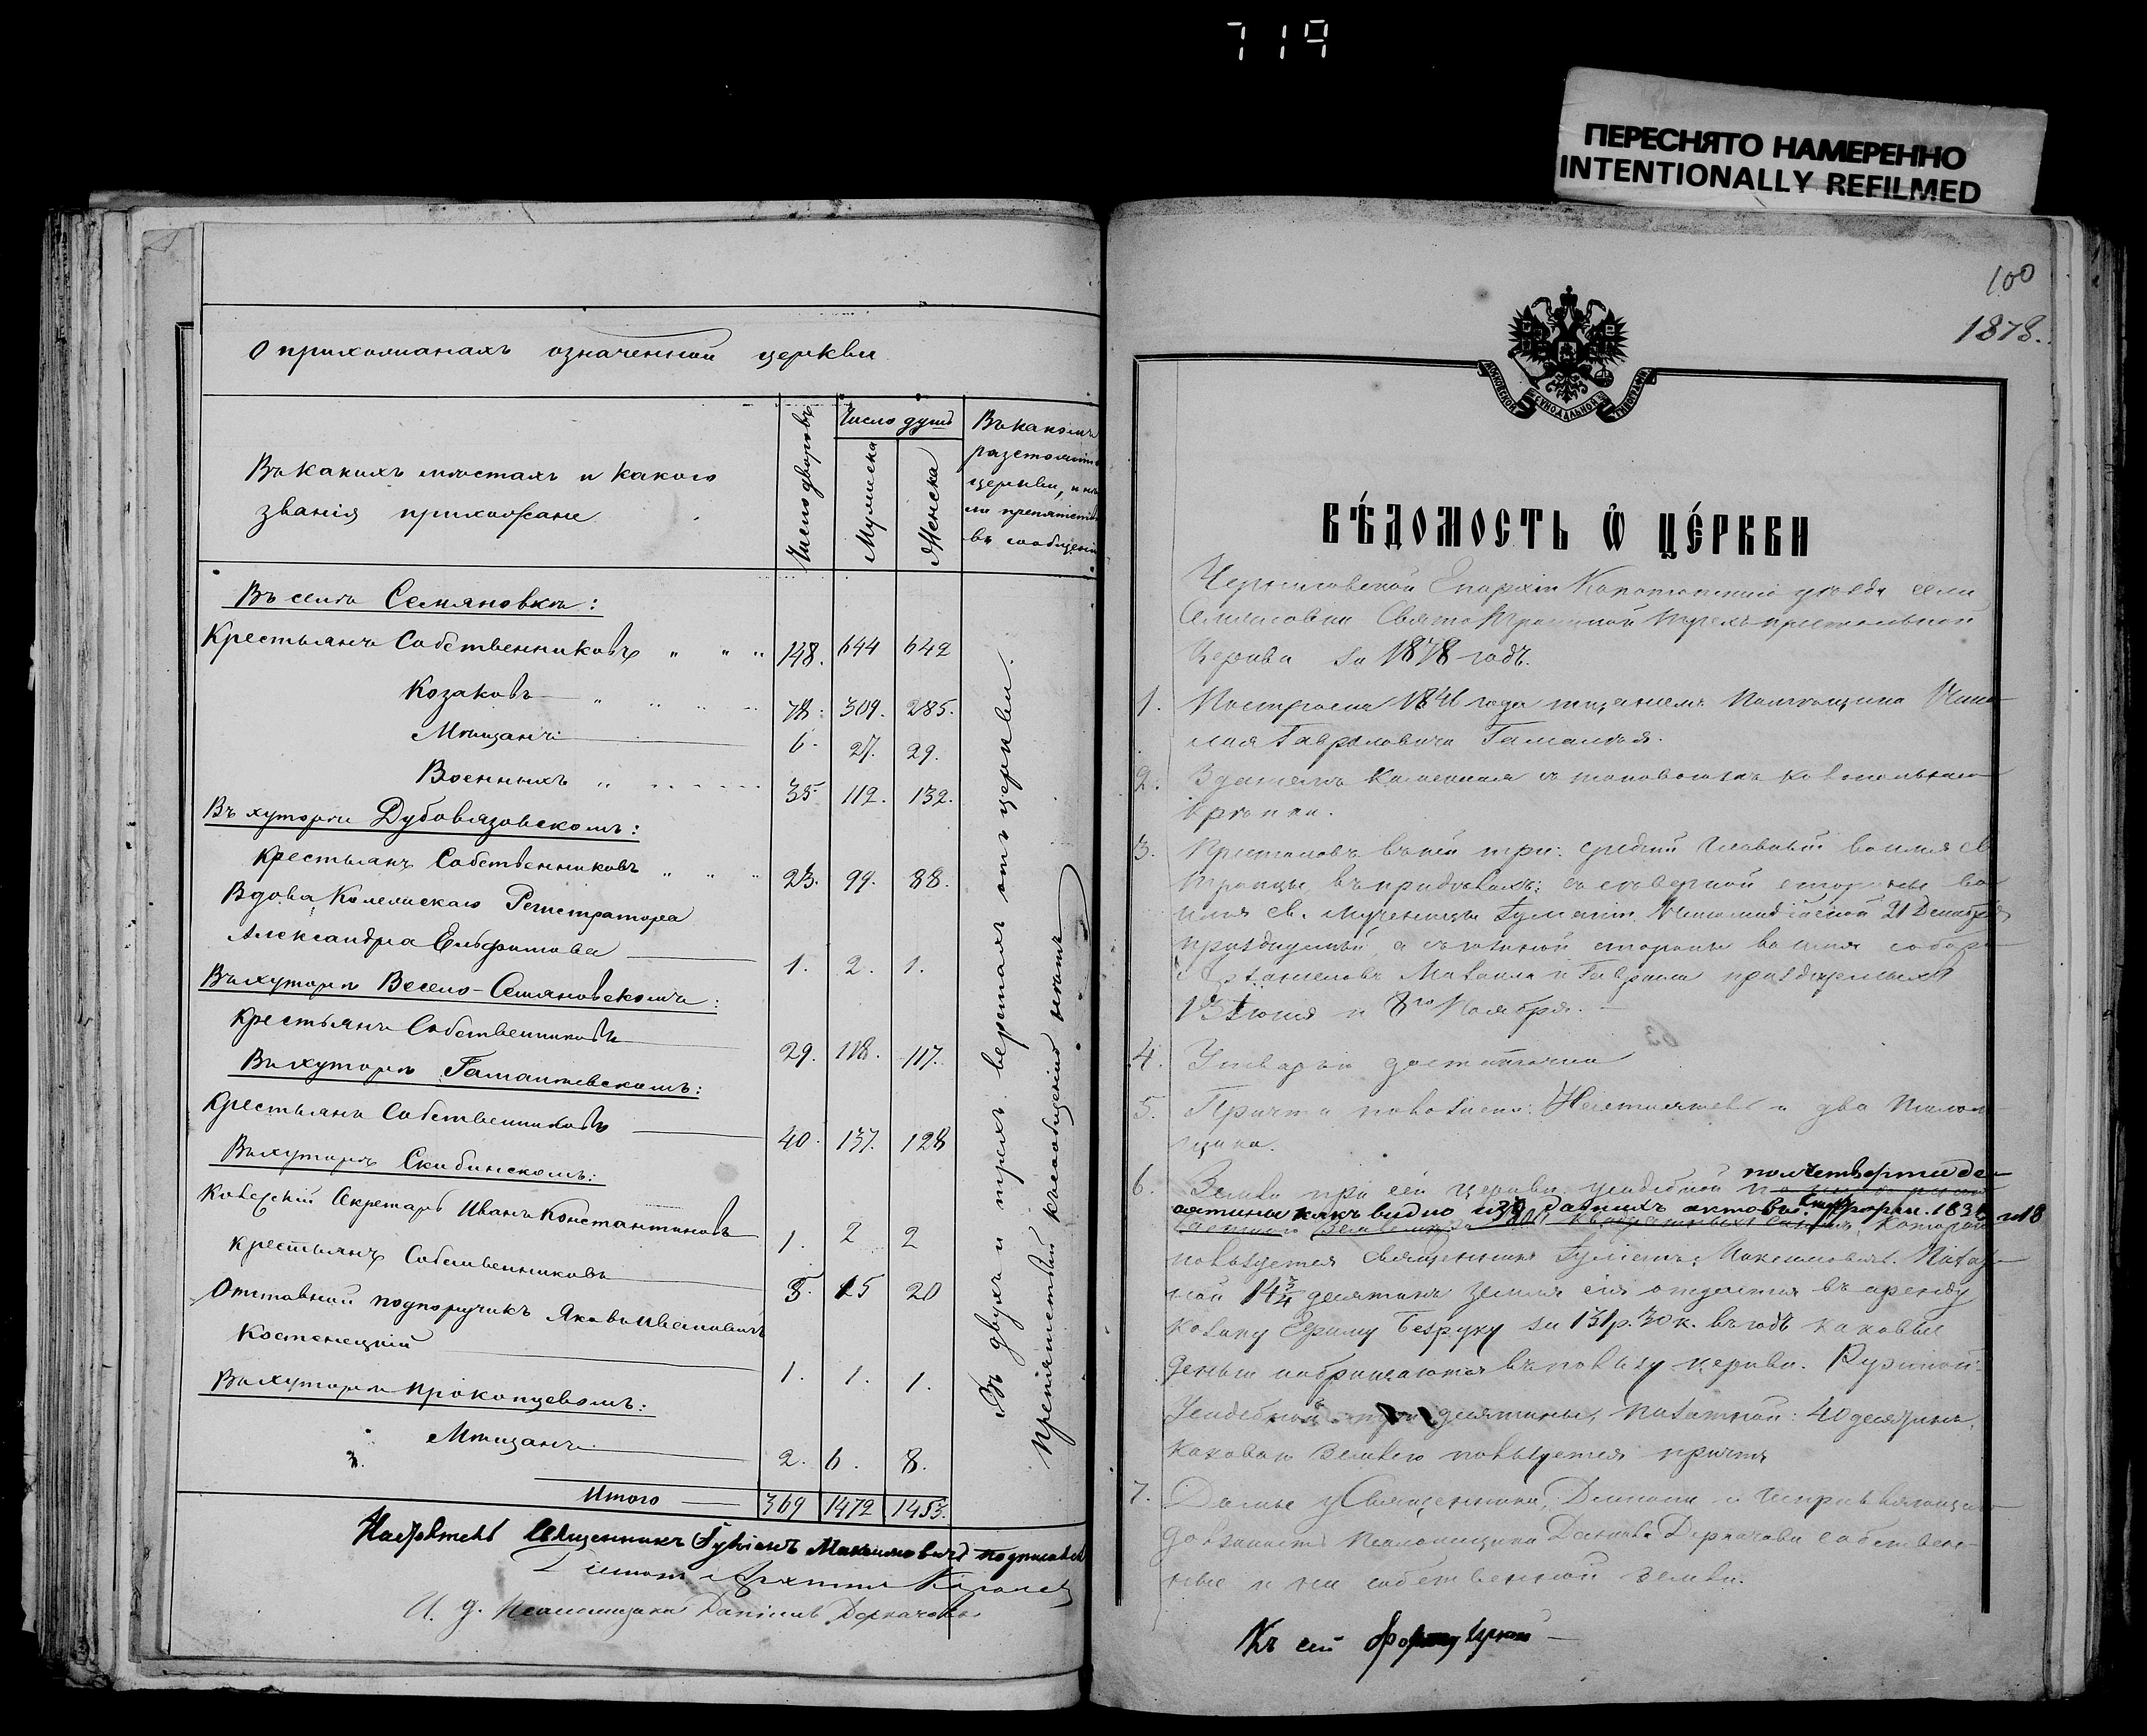 719
ПЕРЕСНЯТО НАМЕРЕННО
INTENTIONALLY REFILMED
О прихожанахъ означенной церкви
Въ какихъ мѣстахъ и какого
званія прихожане
Число дворовъ
Число душъ
Мужеска
Женска
Въ какомъ
разстояніи
церкви, и нѣтъ
ли препятствія
въ сообщеніи
Въ селѣ Семяновкѣ:
Крестьянъ Собственниковъ " " " 148. 644 642
Козаковъ 78. 309. 285.
Мѣщанъ 6. 27. 29.
Военныхъ " 35. 112. 132.
Въ хуторѣ Дубовязовскомъ:
Крестьянъ Собственниковъ " " " 23. 99. 88.
Вдова Колежскаго Регистратора
Александра 1. 2. 1.
Въ хуторѣ Весело-Семяновскомъ:
Крестьянъ Собственниковъ 29. 118. 117.
Въ хуторѣ Гамалѣевскомъ:
Крестьянъ Собственниковъ 40. 137. 128
Въ хуторѣ Скибинскомъ:
Секретарь Иванъ Константиновъ 1. 2 2
Крестьянъ Собственниковъ 5. 15 20
Отставной подпоручикъ Яковъ Ивановичъ
Костенецкій 1. 1. 1.
Въ хуторѣ Прокопцевомъ:
Мѣщанъ 2. 6. 8.
Итого 369 1472 1453.
Въ двухъ и трехъ верстахъ отъ церкви.
Препятствій къ сообщенію нѣтъ
Настоятель Священникъ Іуліанъ Максимовичъ подписался
И. д. Псаломщика Даніилъ Деркачевъ
100
1878.
МОСКОВСКОЙ СѴНОДАЛЬНОЙ ТИПОГРАФІИ
ВѢ́ДОМОСТЬ Ѽ ЦЕ́РКВИ
Черниговской Епархіи Конотопскаго уѣзда села
Семяновки Свято Троицкой трехъ престольной
Церкви за 1878 годъ.
1. Построена 1841 года тщаніемъ Помѣщика
Гавриловича Гамалѣя.
2. Зданіемъ каменная съ таковою же колокольнею
крѣпка.
3. Престоловъ въ ней три: средній главный во имя св.
Троицы, въ придѣлахъ: съ сѣверной стороны во
имя св. мученицы Іуліаніи Никомидійской 21 Декабря
празднуемый, а съ южной стороны во имя собора
Михаила и Гавріила празднуемыхъ
13 Іюля и 8го Ноября.
4. Утварью достаточна
5. Причта положено: Настоятель и два Псалом-
щика.
6. Земли при сей церкви усадебной полчетверти де-
сятины какъ видно изъ данныхъ актовъ 1831 и 18
пользуется священникъ Іуліанъ Максимовичъ. Пахат-
ной 14 3/4 десятинъ земля сія отдается въ аренду
козаку Безруку за 131 р. 30 к. въ годъ каковые
деньги въ пользу церкви.
Усадебной десятины, пахатной: 40 десятинъ,
каковою землею пользуется причтъ
7. Домы у Священника, Діакона и исправляющаго
должность псаломщика Даніила Деркачева собствен-
ные и на собственной земли.
Къ сей